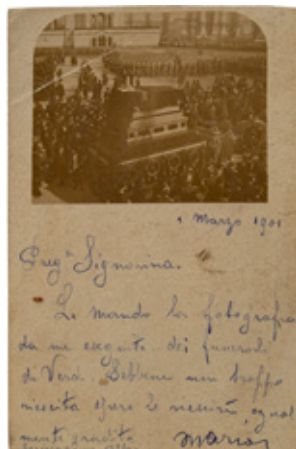 Marzo 1901
Preg.ma Signorina.
Le mando la fotografia
da me eseguita dei funerali
di Verdi. Sebbene non troppo
riuscita spero le riescirà egual
mente gradita
Mario